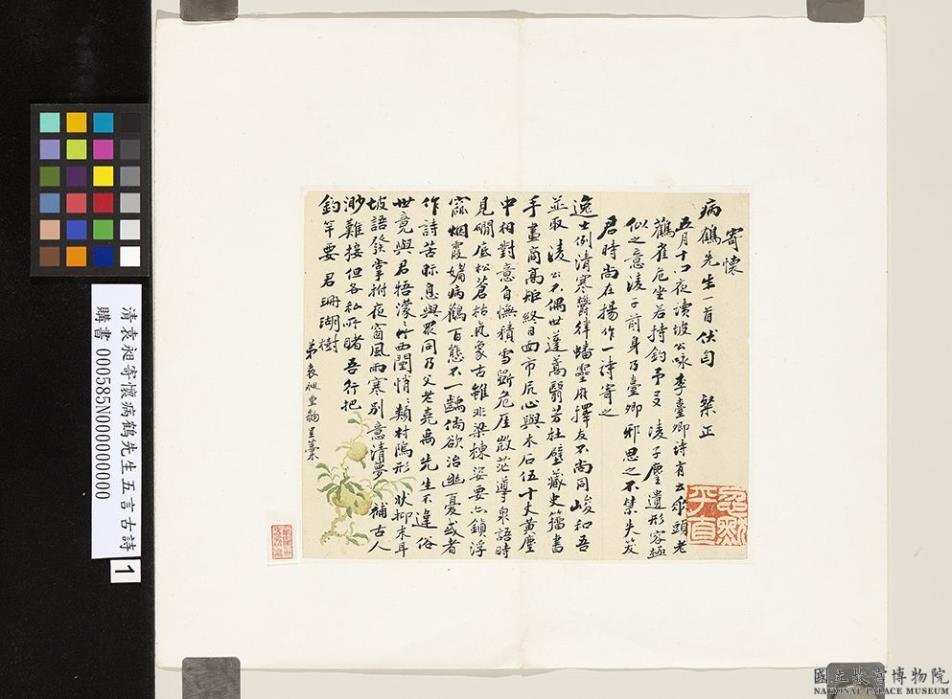 寄懷
病鶴先生一首伏匄 槃正
五月十口夜讀坡公咏李臺卿詩有云
鸛雀危坐若持釣 凌子塵遺形容極
似之意凌子前身乃臺卿邪思之不禁失笑
君時尚在揚作一詩寄之
逸士例清寒 蟠 擇友不尚同峻和吾
並取凌公不偶世蓬蒿翳若杜壁藏史籀書
手畫商高矩終日面市尻心與木石伍十丈黃塵
中相對意自憮積雪斲危厓微茫導泉語時
見磵底松蒼枯氣象古雖非梁棟姿要亦鎮浮
窳烟霞媚病鸛百態不一齲倘欲治幽憂或者
作詩苦眎息與眾同乃父老堯禹先生不違俗
世竟與君牾濛西閣悄類村隖形狀抑末耳
坡語發掌拊夜窗風雨寒別意清夢補古人
渺難接但各私所睹吾行把
釣竿要君珊瑚樹
弟袁昶 呈藁
清袁昶寄懷病鶴先生五言古詩
購書 000585N000000000
1
國立故宮博物院
NATIONAL PALACE MUSEUM